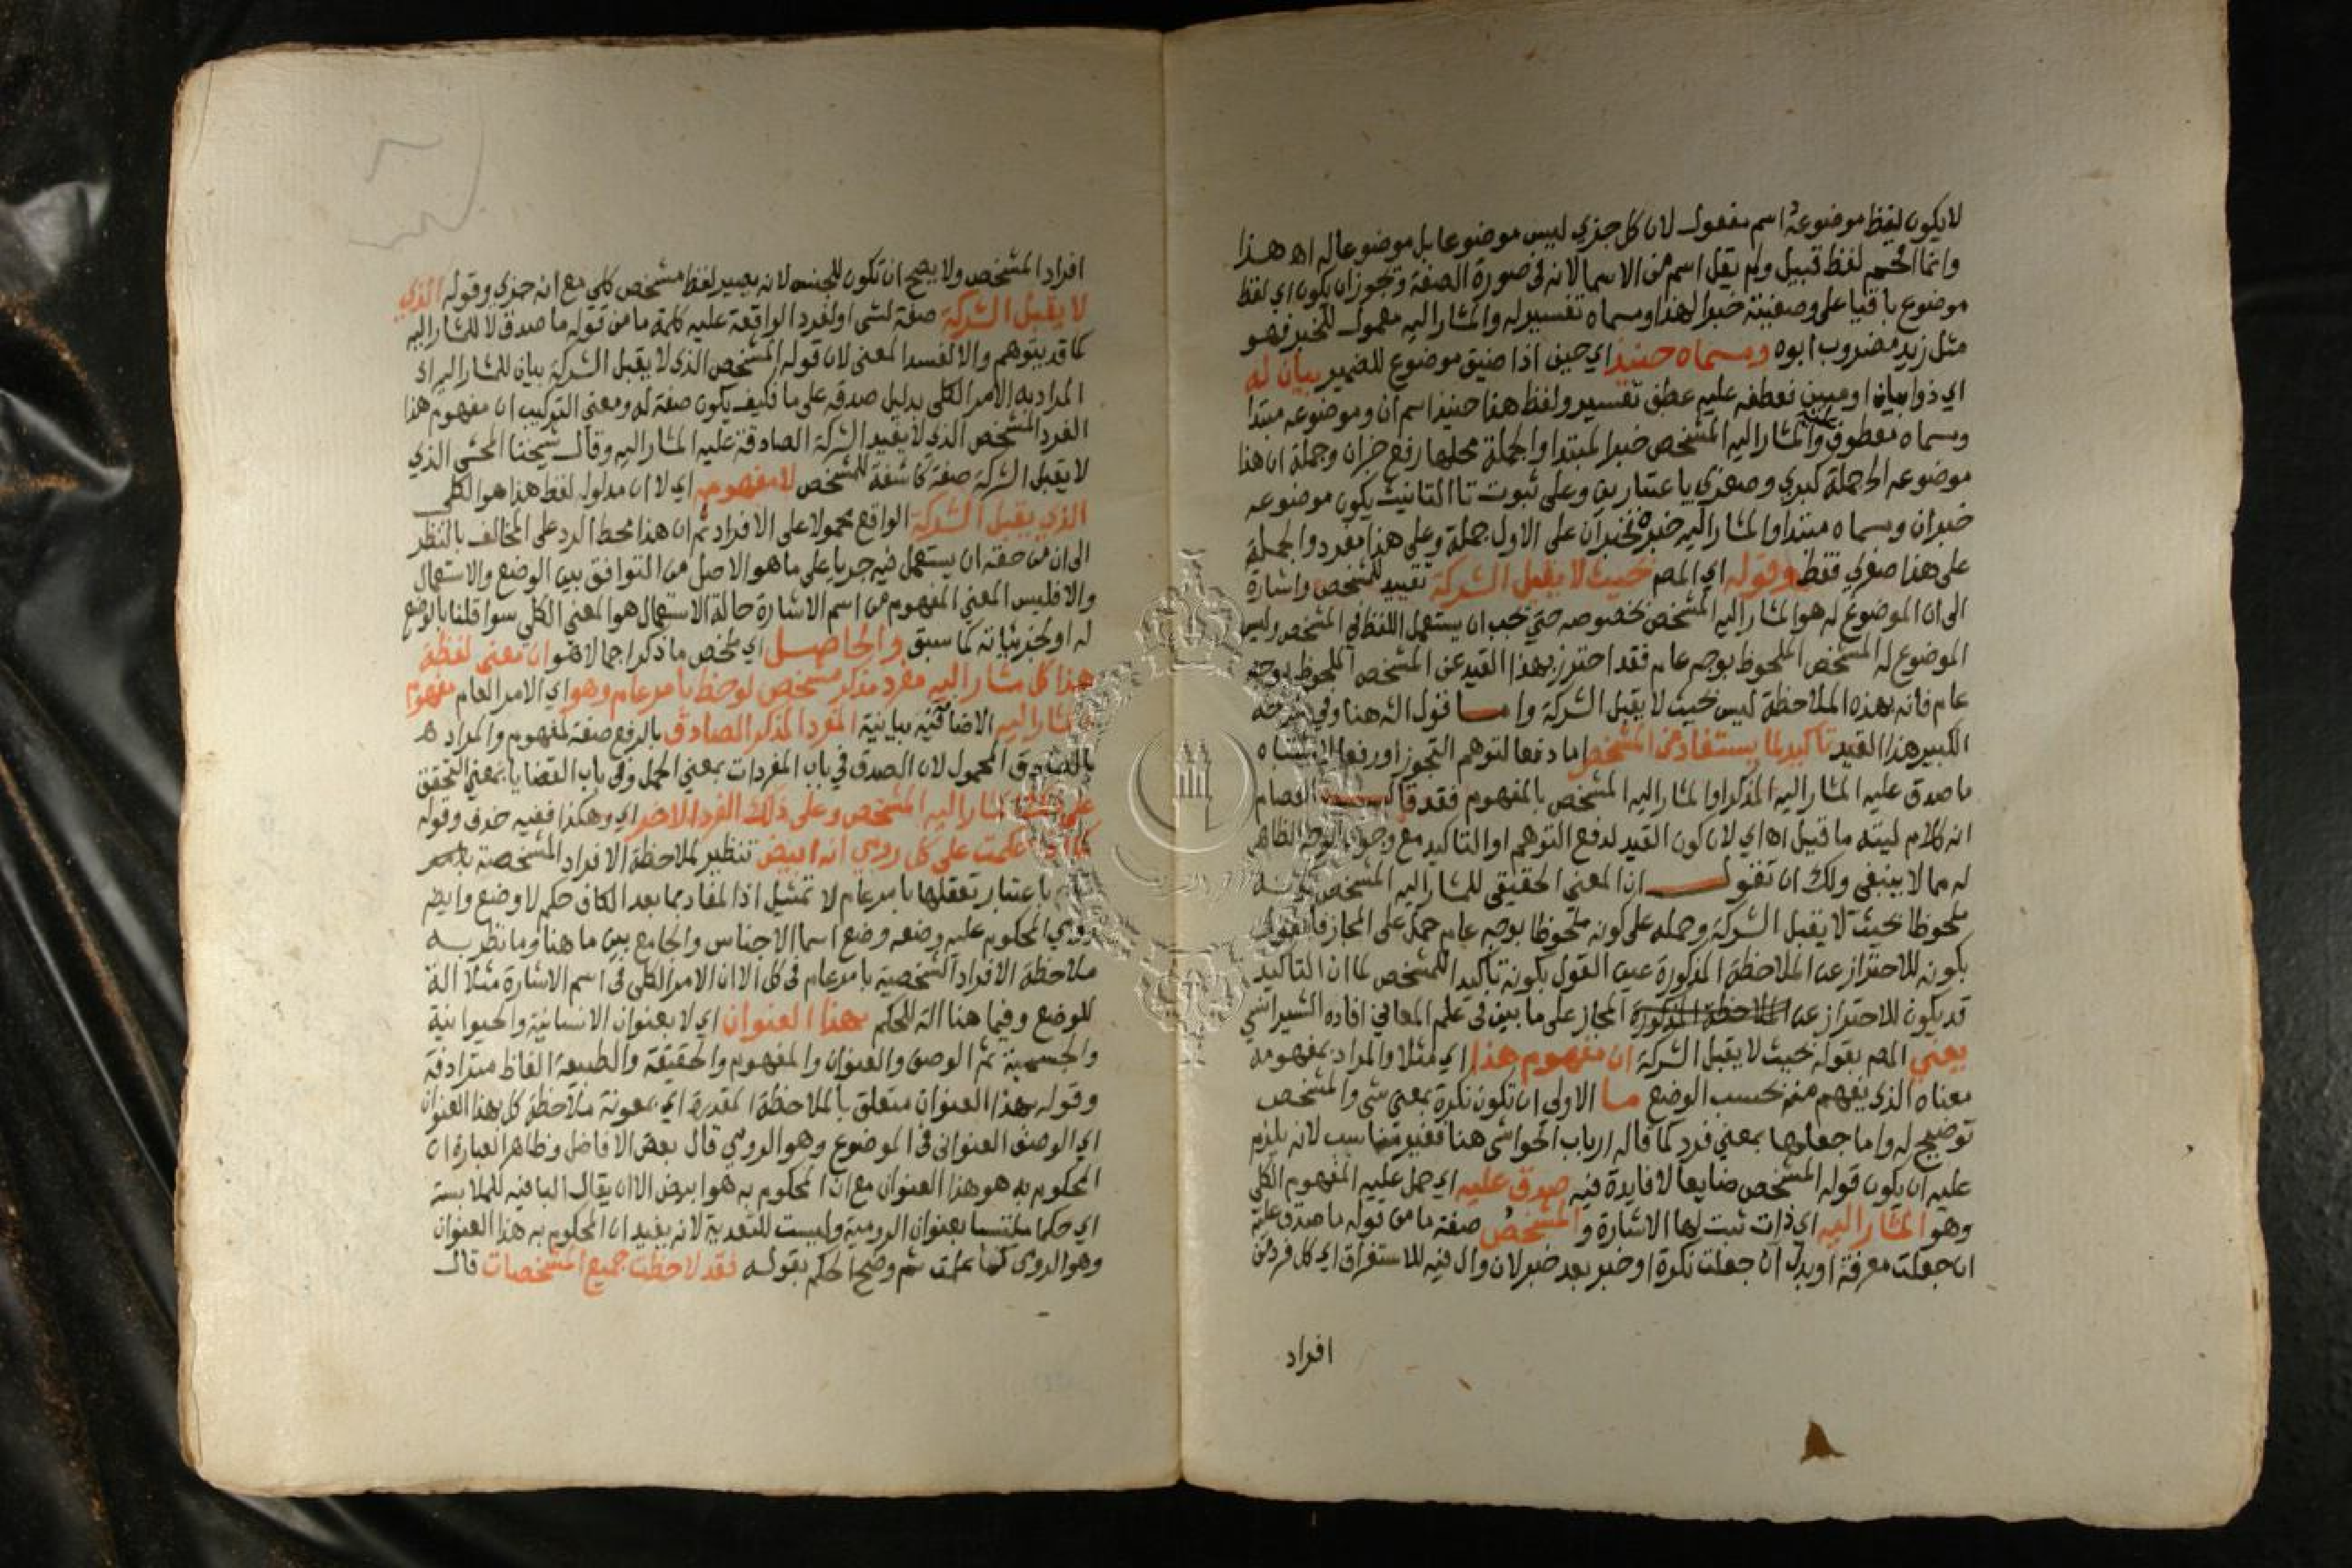 لا يكون لفظ موضوعة اسم مفعول لان كل جزي ليس موضوعا بل موضوعا له اه هذا
وانما اقحم لفظ قبيل ولم يقل اسم من الاسما لانه في صورة الصفة وتجوز ان يكون اي لفظ
موضوع باقيا على وصفيته خبرا لهذا ومسماه تفسير له والمشار اليه معمول للخبر فهو
مثل زيد مضروب ابوه ومسماه حينيذ اي حين اذا ضيق موضوع للضمير بيان له
اي ذوا بيان او مبين فعطفه عليه عطف تفسير ولفظ هذا حينيذ اسم ان وموضوعه مبتدا
ومسماه معطوف والمشار اليه المشخص خبرا لمبتدا والجملة محلها رفع خبران وجملة ان هذا
موضوعه الخ جملة كبري وصغري باعتبارين وعلى ثبوت تا التانيث يكون موضوعه
خبران ومسماه مبتدا والمشار اليه خبره فخبر ان على الاول جملة وعلى هذا مفرد والجملة
على هذا صغري فقط وقوله اي المص بحيث لا يقبل الشركة تقييد للمشخص واشارة
الى ان الموضوع له هو المشار اليه المشخص بخصوصه حتي يجب ان يستعمل اللفظ في المشخص وليس
الموضوع له المشخص الملحوظ بوجه عام فقد احترز بهذا القيد عن المشخص الملحوظ بوجه
عام فانه بهذه الملاحظة ليس بحيث لا يقبل الشركة واما قول الشه هنا وفي شرحه
الكبير هذا القيد تاكيد لما يستفاد من المشخص اما دفعا لتوهم التجوز او رفعا لاشتباه
ما صدق عليه المشار اليه المذكر او المشار اليه المشخص بالمفهوم فقد قال العصام
انه كلام ليته ما قيل اه اي لان كون القيد لدفع التوهم او التاكيد مع وجود الوجه الظاهر
له مما لا ينبغي ولك ان تقول ان المعني الحقيقي للمشار اليه المشخص كونه
ملحوظا بحيث لا يقبل الشركة وحمله على كونه ملحوظا بوجه عام حمل على المجاز فالقول
بكونه للاحتراز عن الملاحظة المذكورة عين القول بكونه تاكيدا للمشخص لما ان التاكيد
قد يكون للاحتراز عن الملاحظة المذكورة المجاز على ما بين في علم المعاني افاده الشيرانشي
يعني المص بقوله بحيث لا يقبل الشركة ان مفهوم هذا اي مثلا والمراد بمفهومه
معناه الذي يفهم منه بحسب الوضع ما الاولي ان تكون نكرة بمعني شي والمشخص
توضيح له واما جعلها بمعني فرد كما قاله ارباب الحواشي هنا فغير مناسب لانه يلزم
عليه ان يكون قوله المشخص ضايعا لا فايدة فيه صدق عليه اي حمل عليه المفهوم الكلي
وهو المشار اليه اي ذات ثبت لها الاشارة و المشخص صفة ما من قوله ما صدق عليه
ان جعلت معرفة او بدل ان جعلت نكرة او خبر بعد خبر لان وال فيه للاستغراق اي كل فرد من
افراد
افراد المشخص ولا يصح ان تكون للجنس لانه يصير لفظ مشخص كلي مع انه جزي وقوله الذي
لا يقبل الشركة صفة لشي او لفرد الواقعة عليه كلمة ما من قوله ما صدق لا للمشار اليه
كما قد يتوهم والا لفسد المعني لان قوله المشخص الذي لا يقبل الشركة بيان للمشار اليه اذ
المراد به الامر الكلي بدليل صدقه على ما فكيف يكون صفة له ومعني التركيب ان مفهوم هذا
الفرد المشخص الذي لا يفيد الشركة الصادقة عليه المشار اليه وقال شيخنا المحشي الذي
لا يقبل الشركة صفة كاشفة للمشخص لا مفهومه اي لا ان مدلول لفظ هذا هو الكلي
الذي يقبل الشركة الواقع محمولا على الافراد ثم ان هذا محط الرد على المخالف بالنظر
الى ان من حقه ان يستعمل فيه جريا على ما هو الاصل من التوافق بين الوضع والاستعمال
والا فليس المعني المفهوم من اسم الاشارة حالة الاستعمال هو المعني الكلي سوا قلنا بالوضع
له او لجزئياته كما سبق والحاصل اي ملخص ما ذكر اجمالا هو ان معني لفظة
هذا كل مشار اليه مفرد مذكر مشخص لوحظ بامر عام وهو اي الامر العام مفهوم
المشار اليه الاضافة بيانية المفرد المذكر الصادق بالرفع صفة لمفهوم والمراد ه
بالصادق المحمول لان الصدق في باب المفردات بمعني الحمل وفي باب القضايا بمعني التحقق
على ذلك المشار اليه المشخص وعلى ذلك الفرد الاخر اي وهكذا ففيه حذف وقوله
كما اذا حكمت على كل رومي انه ابيض تنظير لملاحظة الافراد المشخصة بامر
عام باعتبار تعقلها بامر عام لا تمثيل اذا المفاد بما بعد الكاف حكم لا وضع وايضا
رومي المحكوم عليه وضعه وضع اسما الاجناس والجامع بين ما هنا وما نظر به
ملاحظة الافراد الشخصية بامر عام في كل الا ان الامر الكلي في اسم الاشارة مثلا الة
للوضع وفيما هنا الة للحكم بهذا العنوان اي لا بعنوان الانسانية والحيوانية
والجسمية ثم الوصف والعنوان والمفهوم والحقيقة والطبيعة الفاظ مترادفة
وقوله بهذا العنوان متعلق بالملاحظة المقدرة اي بمعونة ملاحظة كل بهذا العنوان
اي الوصف العنواني في الموضوع وهو الرومي قال بعض الافاضل وظاهر العبارة ان
المحكوم به هو هذا العنوان مع ان المحكوم به هو ابيض الا ان يقال البا فيه للملابسة
اي حكما ملتبسا بعنوان الرومية وليست للتعدية لانه يفيد ان المحكوم به هذا العنوان
وهو الرومي كما علمت ثم وضح الحكم بقوله فقد لاحظت جميع المشخصات قال